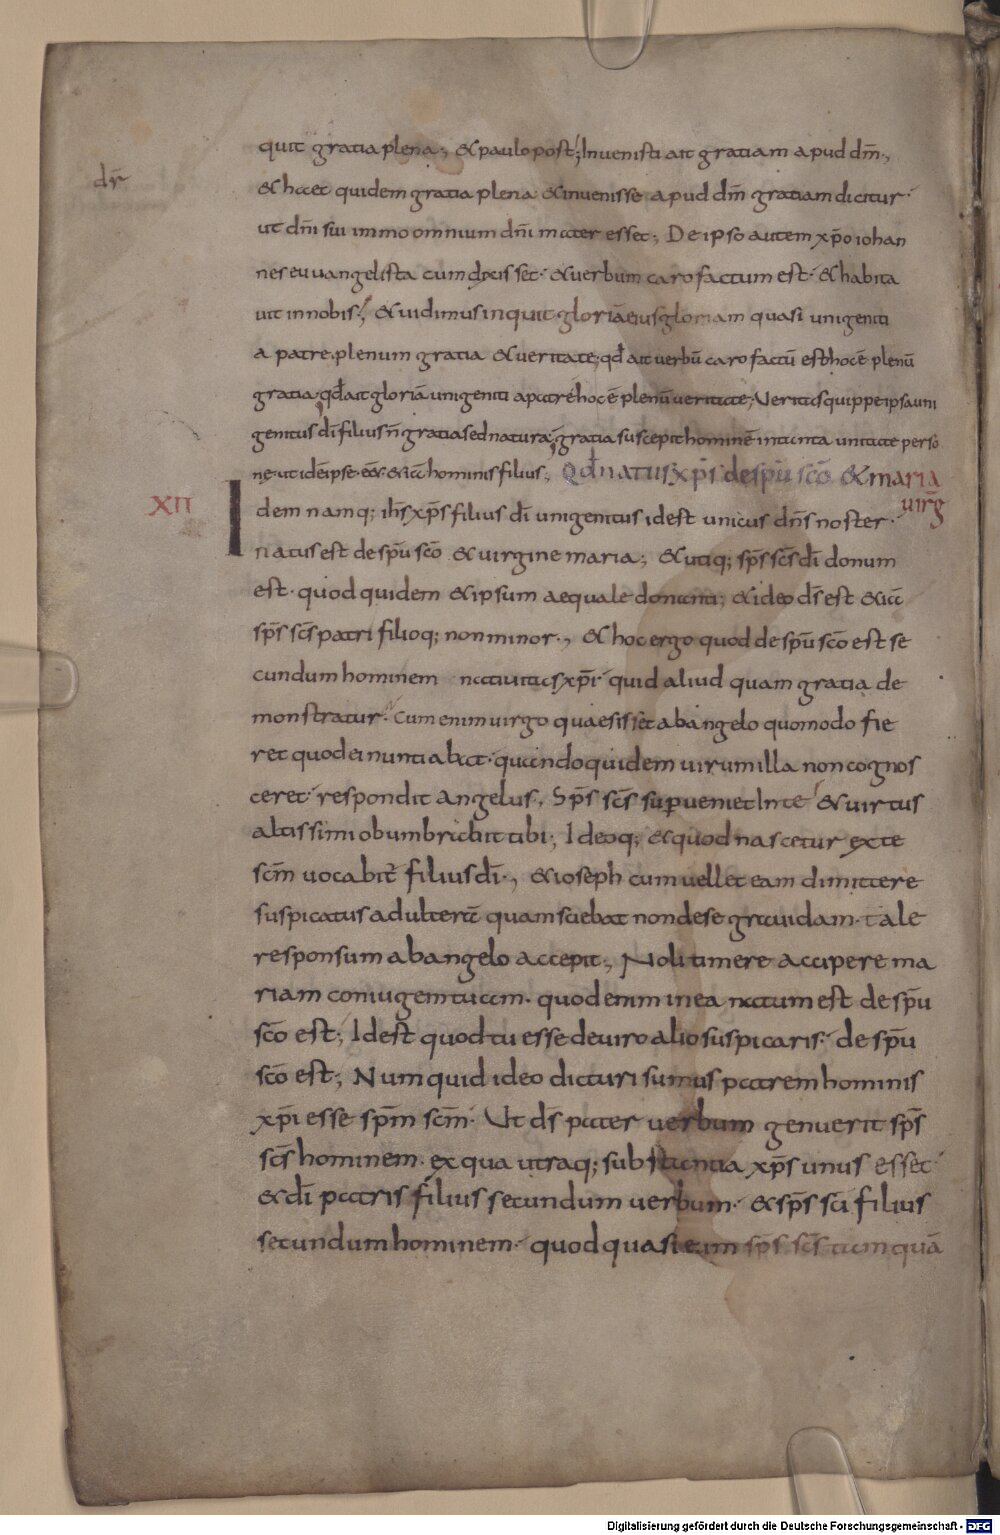 quit gratia plena; & paulo post; Invenisti ait gratiam apud dm̄.,
dr̄
& haec quidem gratia plena & invenisse apud dm̄ gratiam dicitur·
ut dn̄i sui immo omnium dn̄i mater esset; De ipso autem xp̄o iohan
nes euuangelista cum dixisset· & verbum caro factum est· & habita
uit in nobis; & vidimus inquit gloriā eius gloriam quasi unigeniti
a patre plenum gratia & veritate; qđ ait verbū caro factū est hoc ē plenū
gratia· qđ ait gloriā unigeniti a patre hoc ē plenū veritate; Veritas quippe ipsa uni
genitus dī filius n̄ gratia sed natura; gratia suscepit hominē in tanta unitate perso
ne· ut idē ipse eēt & iā hominis filius; Qđ natus xp̄s de spū scō & maria
virḡ
XII
Idem namq; ih̄s xp̄s filius dī unigenitus idest unicus dn̄s noster·
natus est de spū scō & virgine maria; & utiq; sp̄s sc̄s dī donum
est· quod quidem & ipsum aequale donanti; & ideo dš est & iā
sp̄s sc̄s patri filioq; non minor., & hoc ergo quod de spū scō est se
cundum hominem nativitas xp̄i quid aliud quam gratia de
monstratur· Cum enim virgo quaesisset ab angelo quomodo fie
ret quod ei nuntiabat· quandoquidem virum illa non cognos
ceret· respondit angelus., Sp̄s sc̄s superveniet In te & virtus
altissimi obumbrabit tibi; Ideoq; & quod nascetur ex te
scm̄ vocabit̄ filius dī., & ioseph cum vellet eam dimittere
suspicatus adulterā quam sciebat non de se gravidam· tale
responsum ab angelo accepit., Noli timere accipere ma
riam coniugem tuam· quod enim in ea natum est de spū
scō est; Idest quod tu esse de viro alio suspicaris· de spū
scō est; Numquid ideo dicturi sumus patrem hominis
xp̄i esse spm̄ scm̄· Ut dš pater verbum genuerit sp̄s
sc̄s hominem· ex qua utraq; substantia xp̄s unus esset·
& dī patris filius secundum verbum· & sp̄s scī filius
secundum hominem· quod quasi eum sp̄s sc̄s tamquā
Digitalisierung gefördert durch die Deutsche Forschungsgemeinschaft - DFG